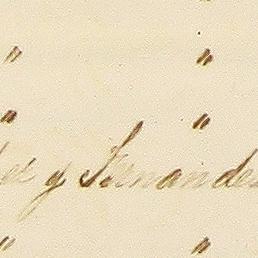 " "
" "
y Fernandes
" "